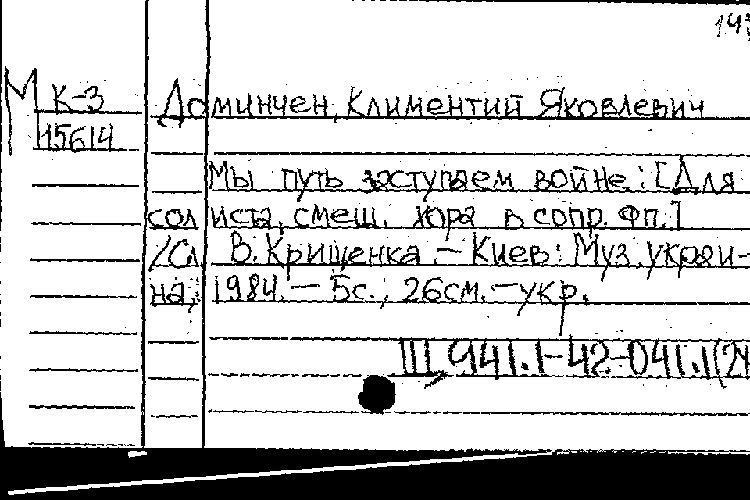 М К-3 Доминчен, Климентий Яковлевич
15614
Мы путь заступаем войне: [Для
солиста, смеш. хора в сопр. фп.]
/Сл В. Крищенка – Киев: Муз. украи-
на, 1984. – 5с., 26см. – укр.
Ш 941.1-42-041.1(2У